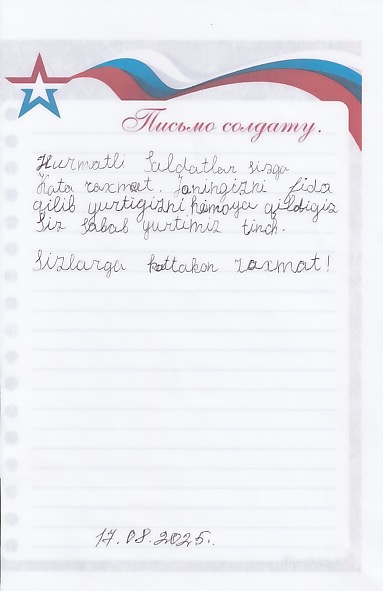 Письмо солдату.
Hurmatli Saldatlar sizga
Kata raxmat. Joningizni fido
qilib yurtigizni himoya qildigiz
Siz sabab yurtimiz tinch.
Sizlarga kattakon raxmat!
17.08.2025.